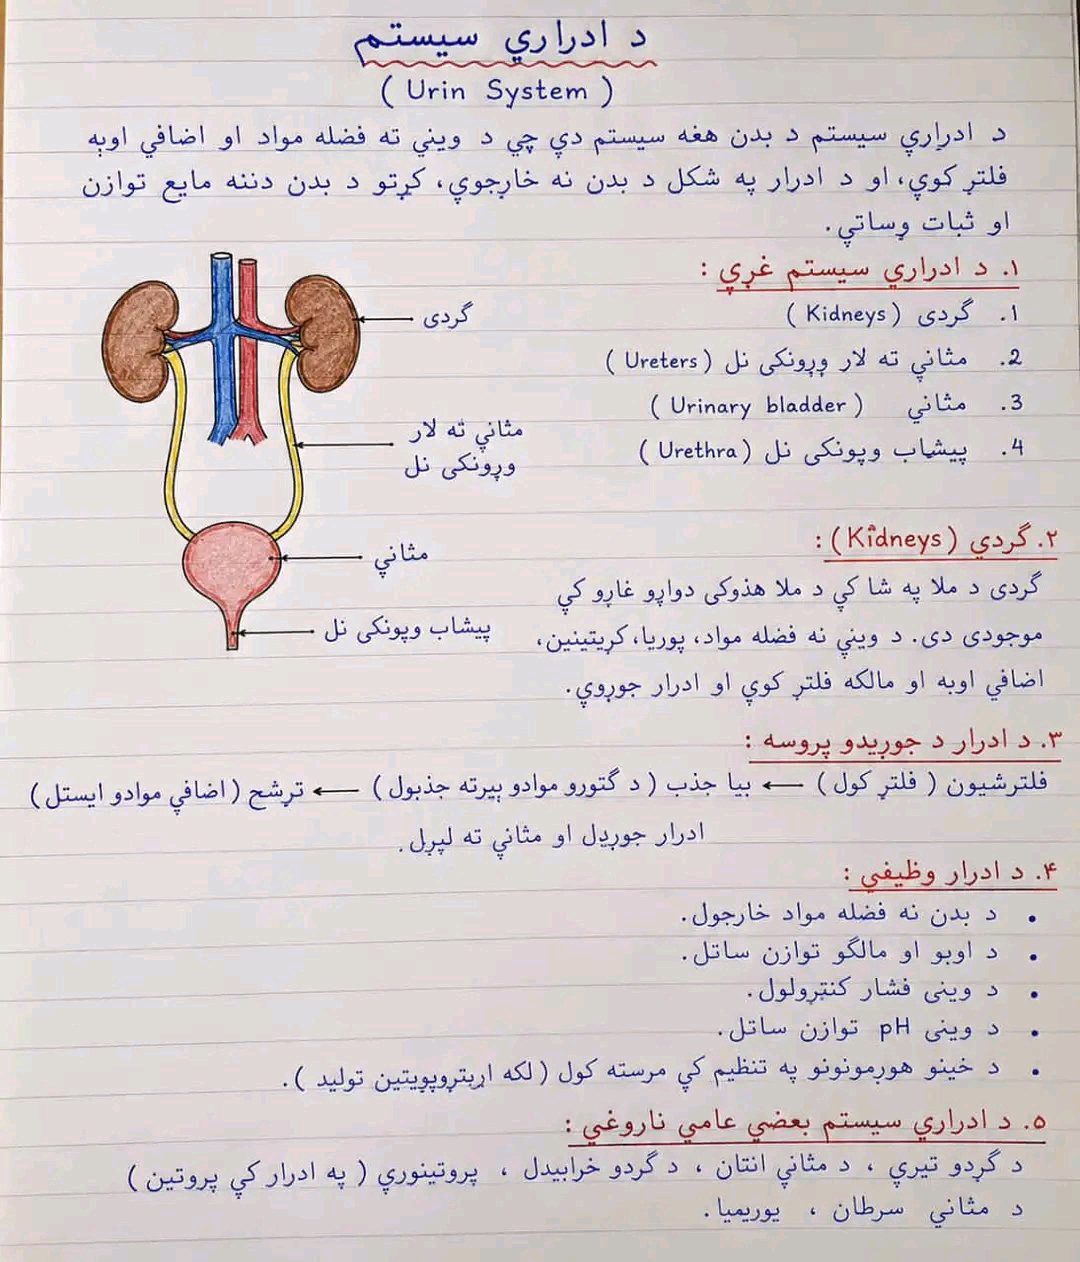 د ادراري سیستم
( Urin System )
د ادراري سیستم د بدن هغه سیستم دي چي د ویني ته فضله مواد او اضافي اوبه
فلټر کوي، او د ادرار په شکل د بدن نه خارجوي، کړتو د بدن دننه مایع توازن
او ثبات وساتي.
۱. د ادراري سیستم غړي :
1. گردی ( Kidneys )
2. مثاني ته لار وړونکی نل ( Ureters )
3. مثاني ( Urinary bladder )
4. پیشاب وپونکی نل ( Urethra )
گردی
مثاني ته لار
وړونکی نل
مثاني
پیشاب وپونکی نل
۲. گردي ( Kidneys ) :
گردی د ملا په شا کي د ملا هذوکی دواړو غاړو کي
موجودی دی. د ویني نه فضله مواد، پوریا، کریتینین،
اضافي اوبه او مالکه فلټر کوي او ادرار جوړوي.
۳. د ادرار د جوړیدو پروسه :
فلترشیون ( فلټر کول ) ← بیا جذب ( د گتورو موادو بیرته جذبول ) ← ترشح ( اضافي موادو ایستل )
ادرار جوړدل او مثاني ته لپړل.
۴. د ادرار وظیفي :
• د بدن نه فضله مواد خارجول.
• د اوبو او مالگو توازن ساتل.
• د وینی فشار کنټرولول.
• د وینی pH توازن ساتل.
• د خینو هورمونونو په تنظیم کي مرسته کول ( لکه اریتروپویتین تولید ).
۵. د ادراري سیستم بعضي عامي ناروغي :
د گردو تیري ، د مثاني انتان ، د گردو خرابیدل ، پروتینوري ( په ادرار کي پروتین )
د مثاني سرطان ، یوریمیا.